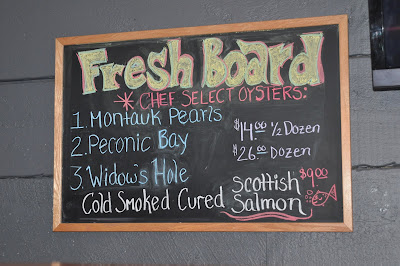 Fresh Board
* CHEF SELECT OYSTERS:
1. Montauk Pearls
$14.00 ½ Dozen
2. Peconic Bay
$26.00 Dozen
3. Widow's Hole
Cold Smoked Cured Scottish Salmon $9.00